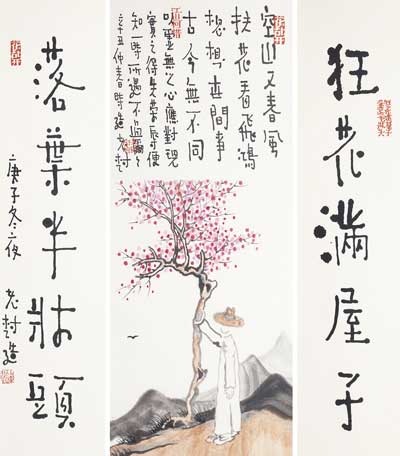 狂花滿屋子
空山又春風
扶花看飛鴻
想想世間事
古今無不同
以虛無之心應對現
實之得失榮辱便
知一時所遇不過
辛丑仲春時造老樹
落葉半牀頭
庚子冬夜 老樹造